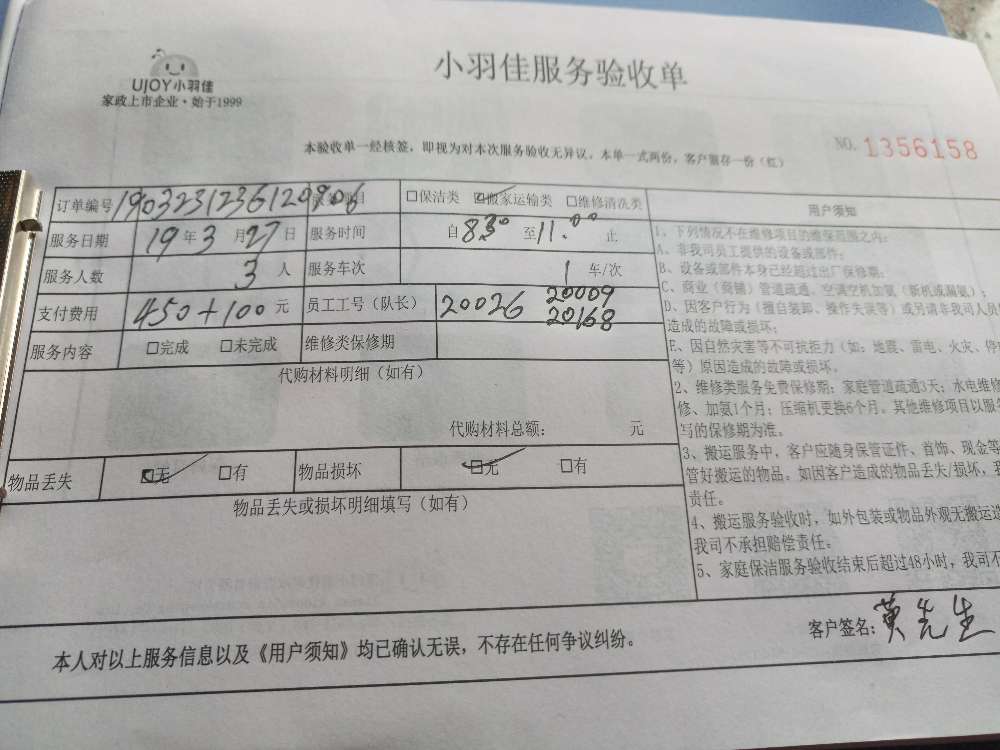 小羽佳服务验收单
UJOY小羽佳
家政上市企业·始于1999
本验收单一经核签，即视为对本次服务验收无异议。本单一式两份，客户留存一份（红）
NO. 1356158
订单编号 190323123612090 6 项目 □保洁类 ☑搬家运输类 □维修清洗类
服务日期 19年3月27日 服务时间 自8:30至11:00止
服务人数 3人 服务车次 1车/次
支付费用 450+100元 员工工号（队长） 20026 20009 20168
服务内容 □完成 □未完成 维修类保修期
代购材料明细（如有）
代购材料总额： 元
物品丢失 ☑无 □有 物品损坏 ☑无 □有
物品丢失或损坏明细填写（如有）
用户须知
1、下列情况不在维修项目的维保范围之内：
A、非我司员工提供的设备或部件；
B、设备或部件本身已经超过出厂保修期；
C、商业（商铺）管道疏通、空调空机加氨（新机或漏氨）；
D、因客户行为（擅自装卸、操作失误等）或另请非我司人员
造成的故障或损坏；
E、因自然灾害等不可抗拒力（如：地震、雷电、火灾、停
等）原因造成的故障或损坏。
2、维修类服务免费保修期：家庭管道疏通3天；水电维修
修、加氨1个月；压缩机更换6个月。其他维修项目以服
写的保修期为准。
3、搬运服务中，客户应随身保管证件、首饰、现金等
管好搬运的物品。如因客户造成的物品丢失/损坏，
责任。
4、搬运服务验收时，如外包装或物品外观无搬运
我司不承担赔偿责任。
5、家庭保洁服务验收结束后超过48小时，我司不
本人对以上服务信息以及《用户须知》均已确认无误，不存在任何争议纠纷。
客户签名：黄先生